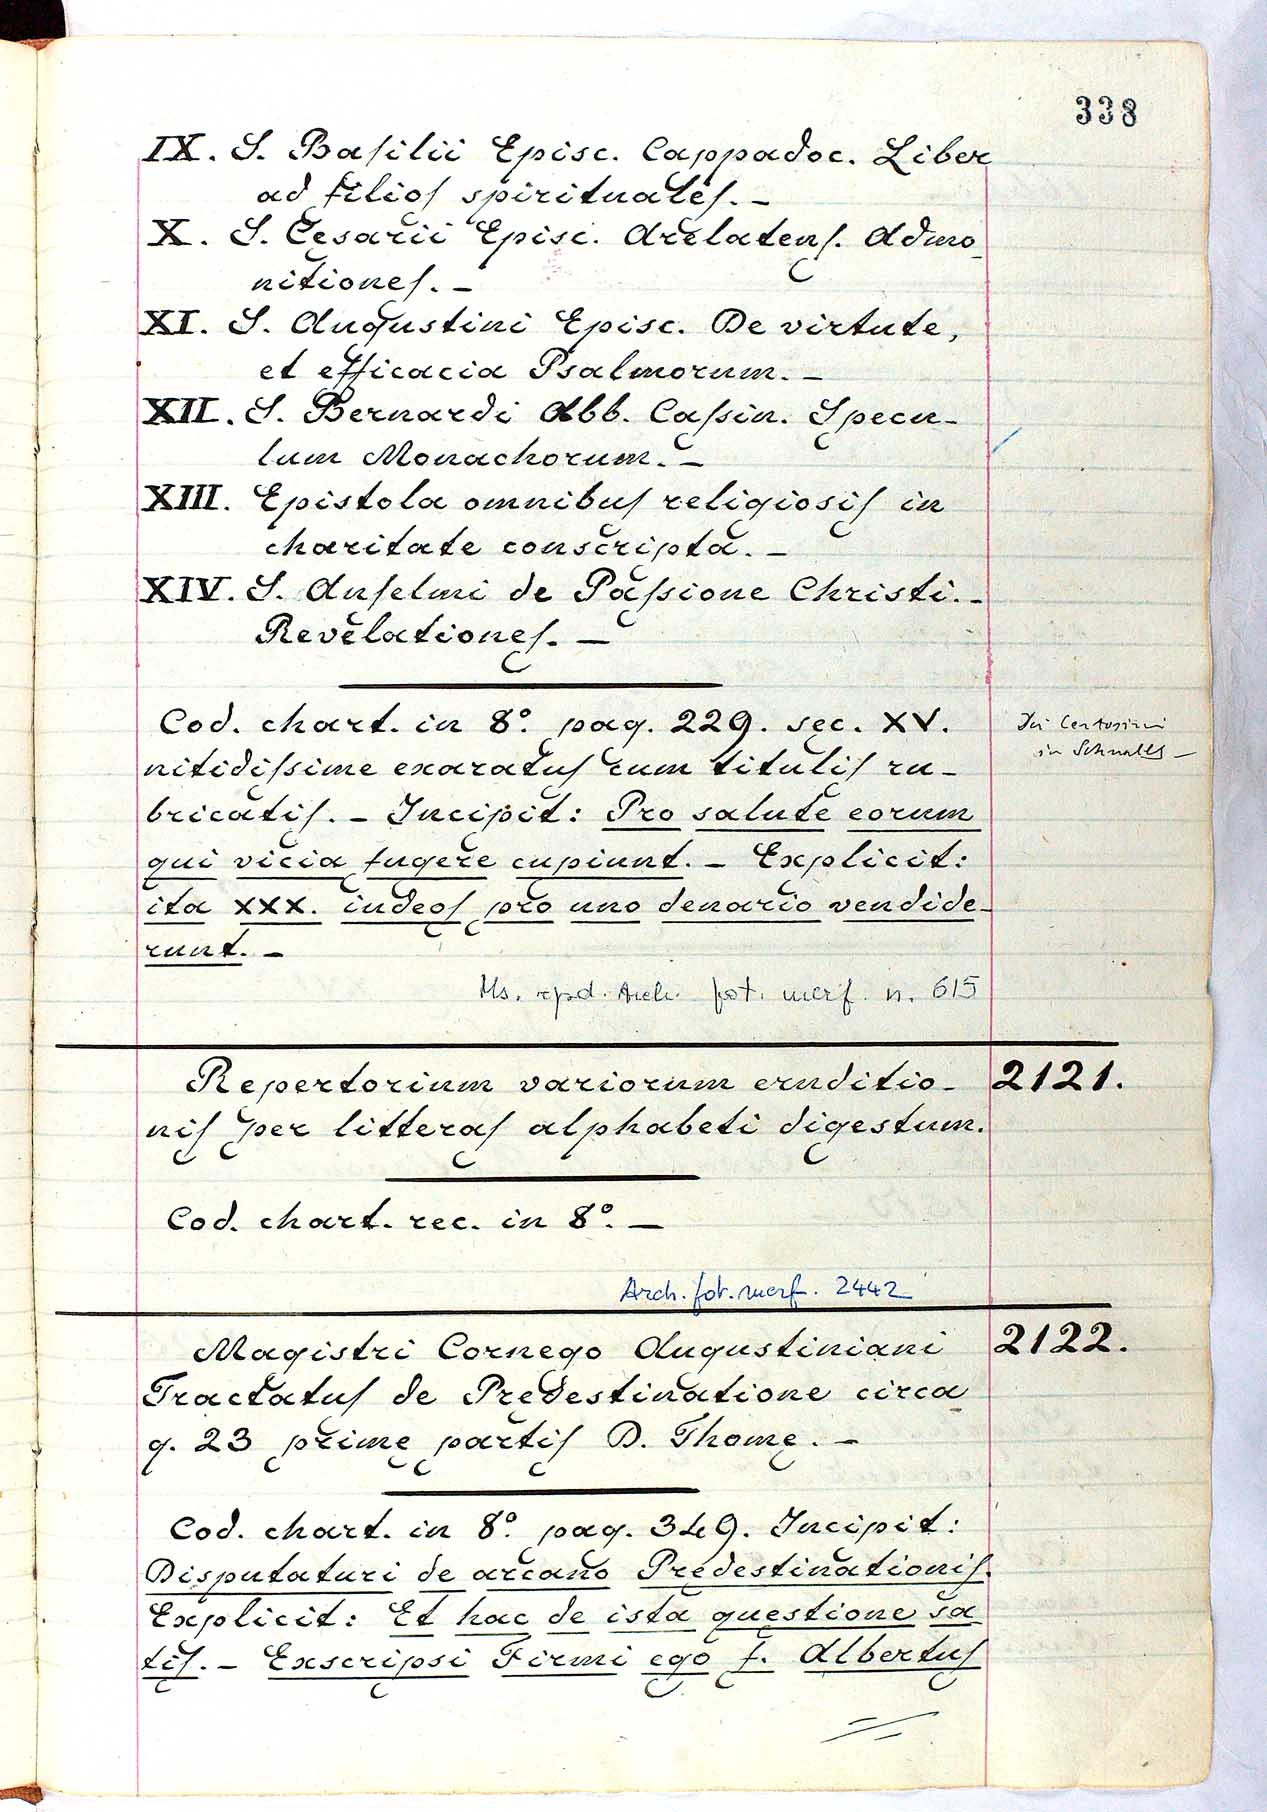 338
IX. S. Baſilii Episc. Cappadoc. Liber
ad filioſ spiritualeſ. –
X. S. Cęsarii Episc. Arelatenſ. Admo-
nitioneſ. –
XI. S. Augustini Episc. De virtute,
et efficacia Psalmorum. –
XII. S. Bernardi Abb. Caſsin. Specu-
lum Monachorum. –
XIII. Epistola omnibuſ religiosiſ in
charitate conscripta. –
XIV. S. Anſelmi de Paſsione Christi. –
Revelationeſ. –
Cod. chart. in 8º. pag. 229. sęc. XV.
nitidiſsime exaratuſ cum tituliſ ru-
bricatiſ. – Incipit: Pro salute eorum
qui vicia fugere cupiunt. – Explicit:
ita XXX. iudeoſ pro uno denario vendide-
runt. –
Certosini
in Schnalls –
Ms. Arch. fot. merf. n. 615
Repertorium variorum eruditio- 2121.
niſ per litteraſ alphabeti digestum.
Cod. chart. rec. in 8º. –
Arch. fot. merf. 2442
Magistri Cornego Augustiniani 2122.
Tractatuſ de Predestinatione circa
q. 23 primę partiſ D. Thomę. –
Cod. chart. in 8º. pag. 349. Incipit:
Disputaturi de arcano Prędestinationiſ.
Explicit: Et hac de ista questione sa
tiſ. – Exscripsi Firmi ego f. Albertuſ